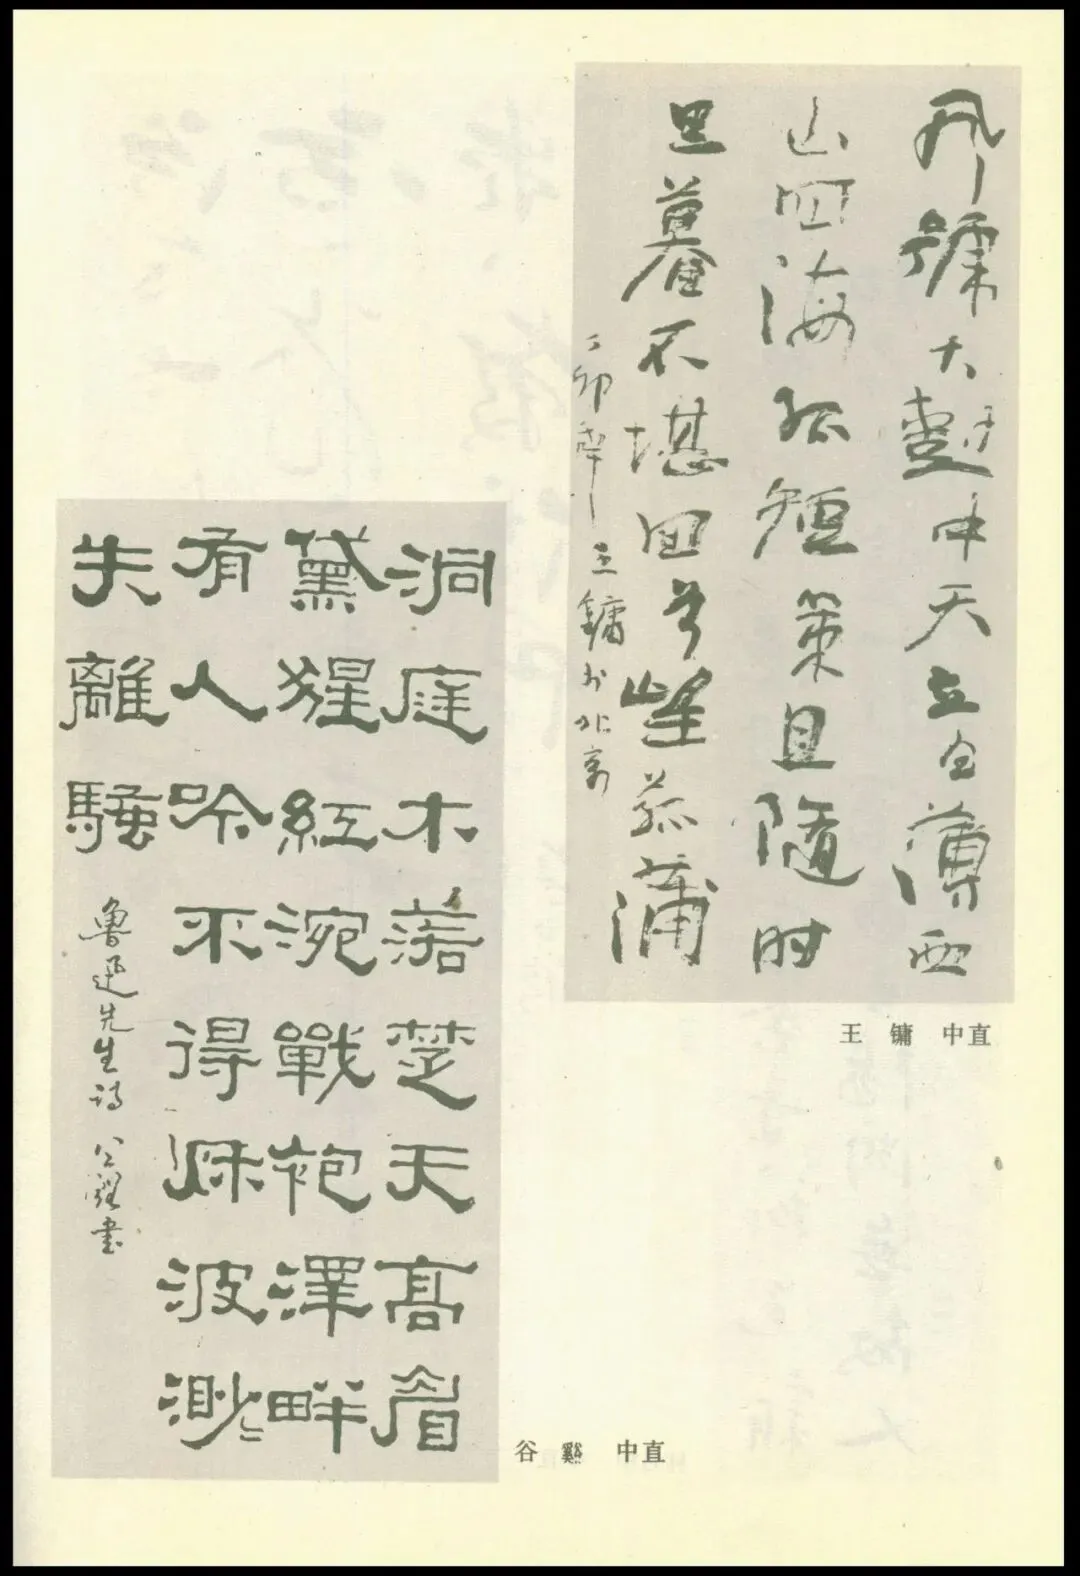 风號大樹中天立日薄西
山四海孤短策且隨时
旦暮不堪回首望菰蒲
丁卯年王鏞于北京
王 镛 中直
洞庭木落楚天高眉
黛猩紅涴戰袍澤畔
有人吟不得秋波渺〻
失離騷
魯迅先生诗 公谿書
谷 谿 中直